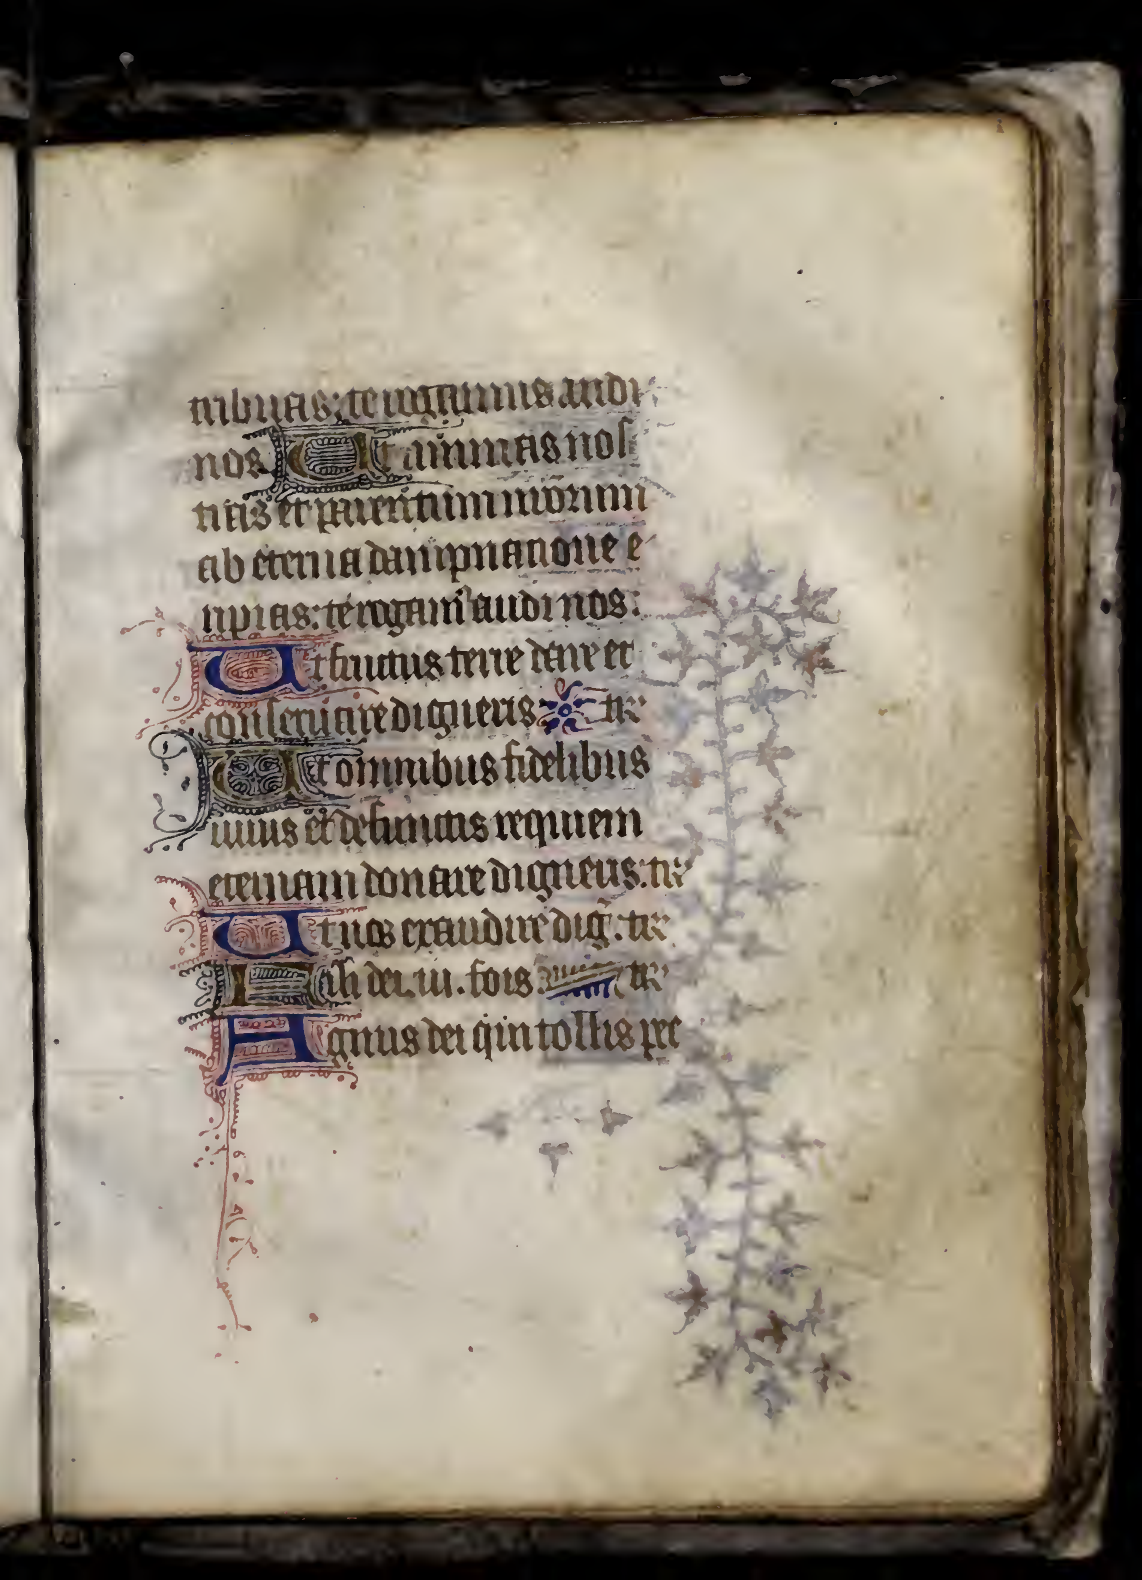 tribuas: te rogamus audi
nos Ut animas nos
tras et parentum nr̄orum
ab eterna dampnatione e
ripias: te rogam̄ audi nos:
Ut fructus terre dare et
conseruare digneris te
Ut omnibus fidelibus
uiuis et defunctis requiem
eternam donare digneris: te
Ut nos exaudire diḡ. te
Fili dei .iii. fois te
Agnus dei qui tollis pec